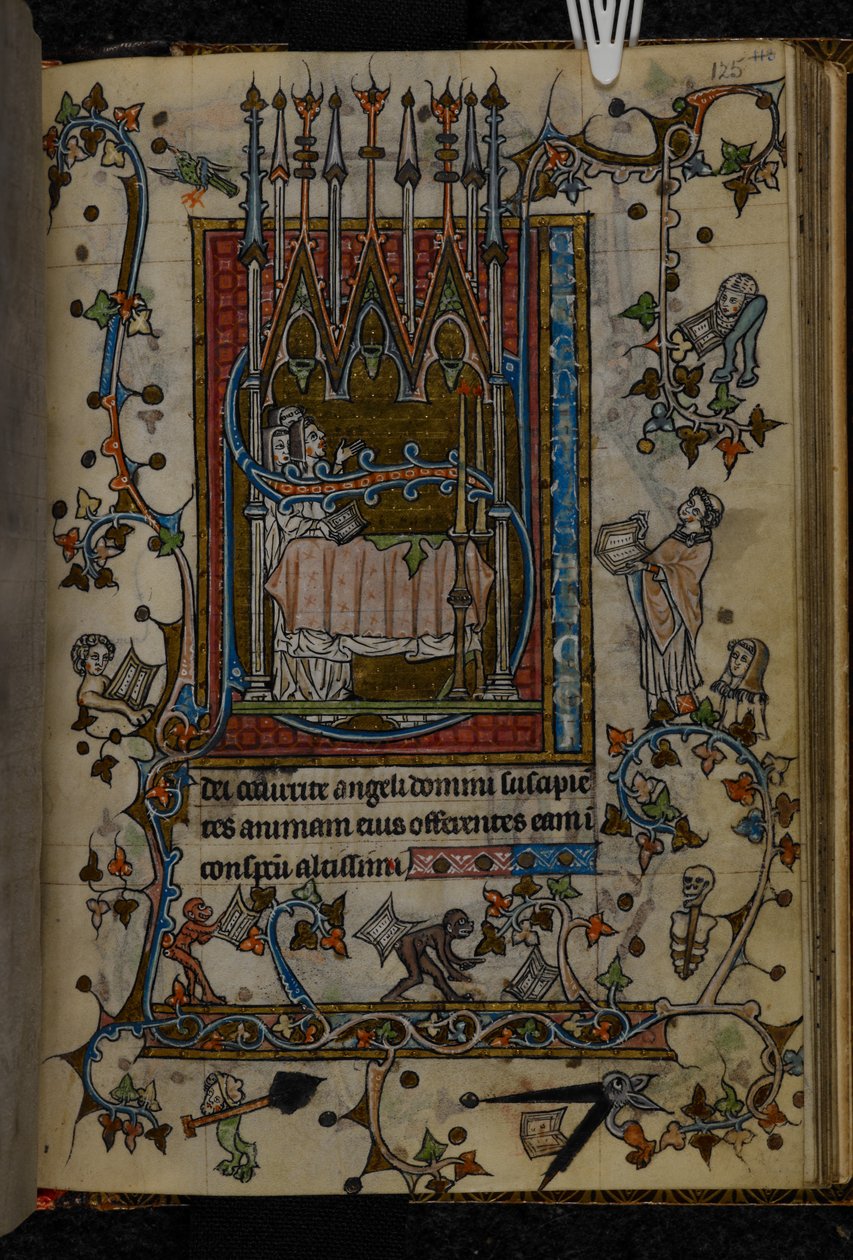 125
dei occurrite angeli domini suscipiē
tes animam eius offerentes eam ī
conspcū altissimi